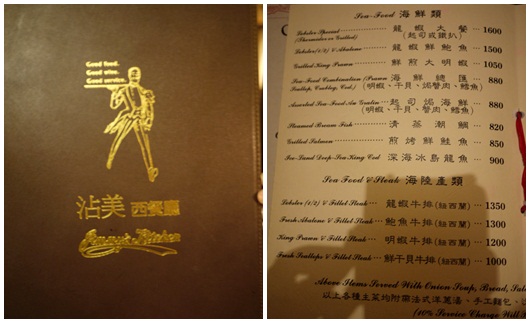 Good food.
Good wine.
Good service.
沾美 西餐廳
Jimmy's Kitchen
Sea-Food 海鮮類
Lobster Special 龍蝦大餐 1600
(Thermidor or Grilled) (起司或鐵扒)
Lobster(1/2) & Abalone 龍蝦鮮鮑魚 1500
Grilled King Prawn 鮮煎大明蝦 1050
Sea-Food Combination (Prawn 海鮮總匯 880
Scallop, Crableg, Cod) (明蝦、干貝、焗蟹肉、鱈魚)
Assorted Sea-Food Au Gratin 起司焗海鮮 880
(明蝦、干貝、蟹肉、鱈魚)
Steamed Bream Fish 清蒸潮鯛 820
Grilled Salmon 煎烤鮮鮭魚 850
Ice-Land Deep-Sea King Cod 深海冰島龍魚 900
Sea Food & Steak 海陸產類
Lobster (1/2) & Fillet Steak 龍蝦牛排(紐西蘭) 1350
Fresh Abalone & Fillet Steak 鮑魚牛排(紐西蘭) 1300
King Prawn & Fillet Steak 明蝦牛排(紐西蘭) 1200
Fresh Scallops & Fillet Steak 鮮干貝牛排(紐西蘭) 1000
Above Items Served With Onion Soup, Bread, Sal
以上各種主菜均附帶法式洋蔥湯、手工麵包、
(10% Service Charge Will